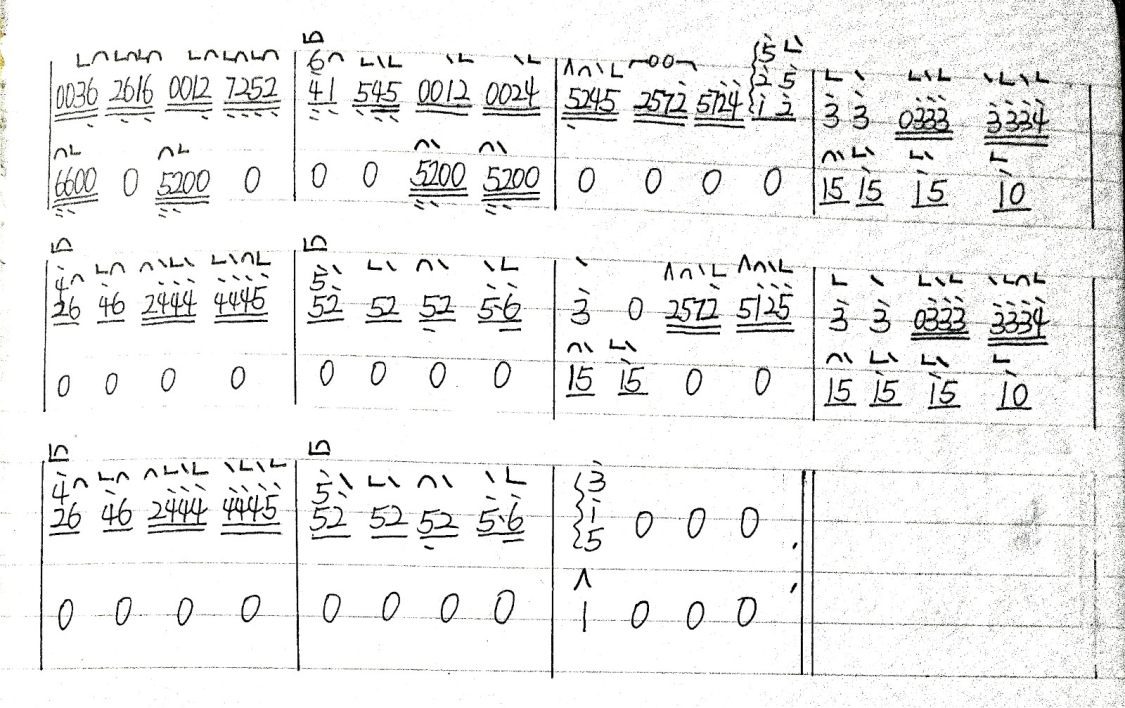 6
0036 2616 0012 7252 | 41 545 0012 0024 | 5245 2572 5724 {5 2 1 5 2 | 3 3 0333 3334
6600 0 5200 0 | 0 0 5200 5200 | 0 0 0 0 | 15 15 15 10
4 5
26 46 2444 4445 | 52 52 52 5·6 | 3 0 2572 5125 | 3 3 0333 3334
0 0 0 0 | 0 0 0 0 | 15 15 0 0 | 15 15 15 10
4 5 3
26 46 2444 4445 | 52 52 52 5·6 | 1 0 0 0
5
0 0 0 0 | 0 0 0 0 | 1 0 0 0